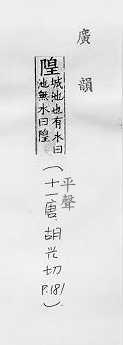 廣韻
隍城池也有水曰
池無水曰隍
平聲
(十一唐 胡光切
P.181)